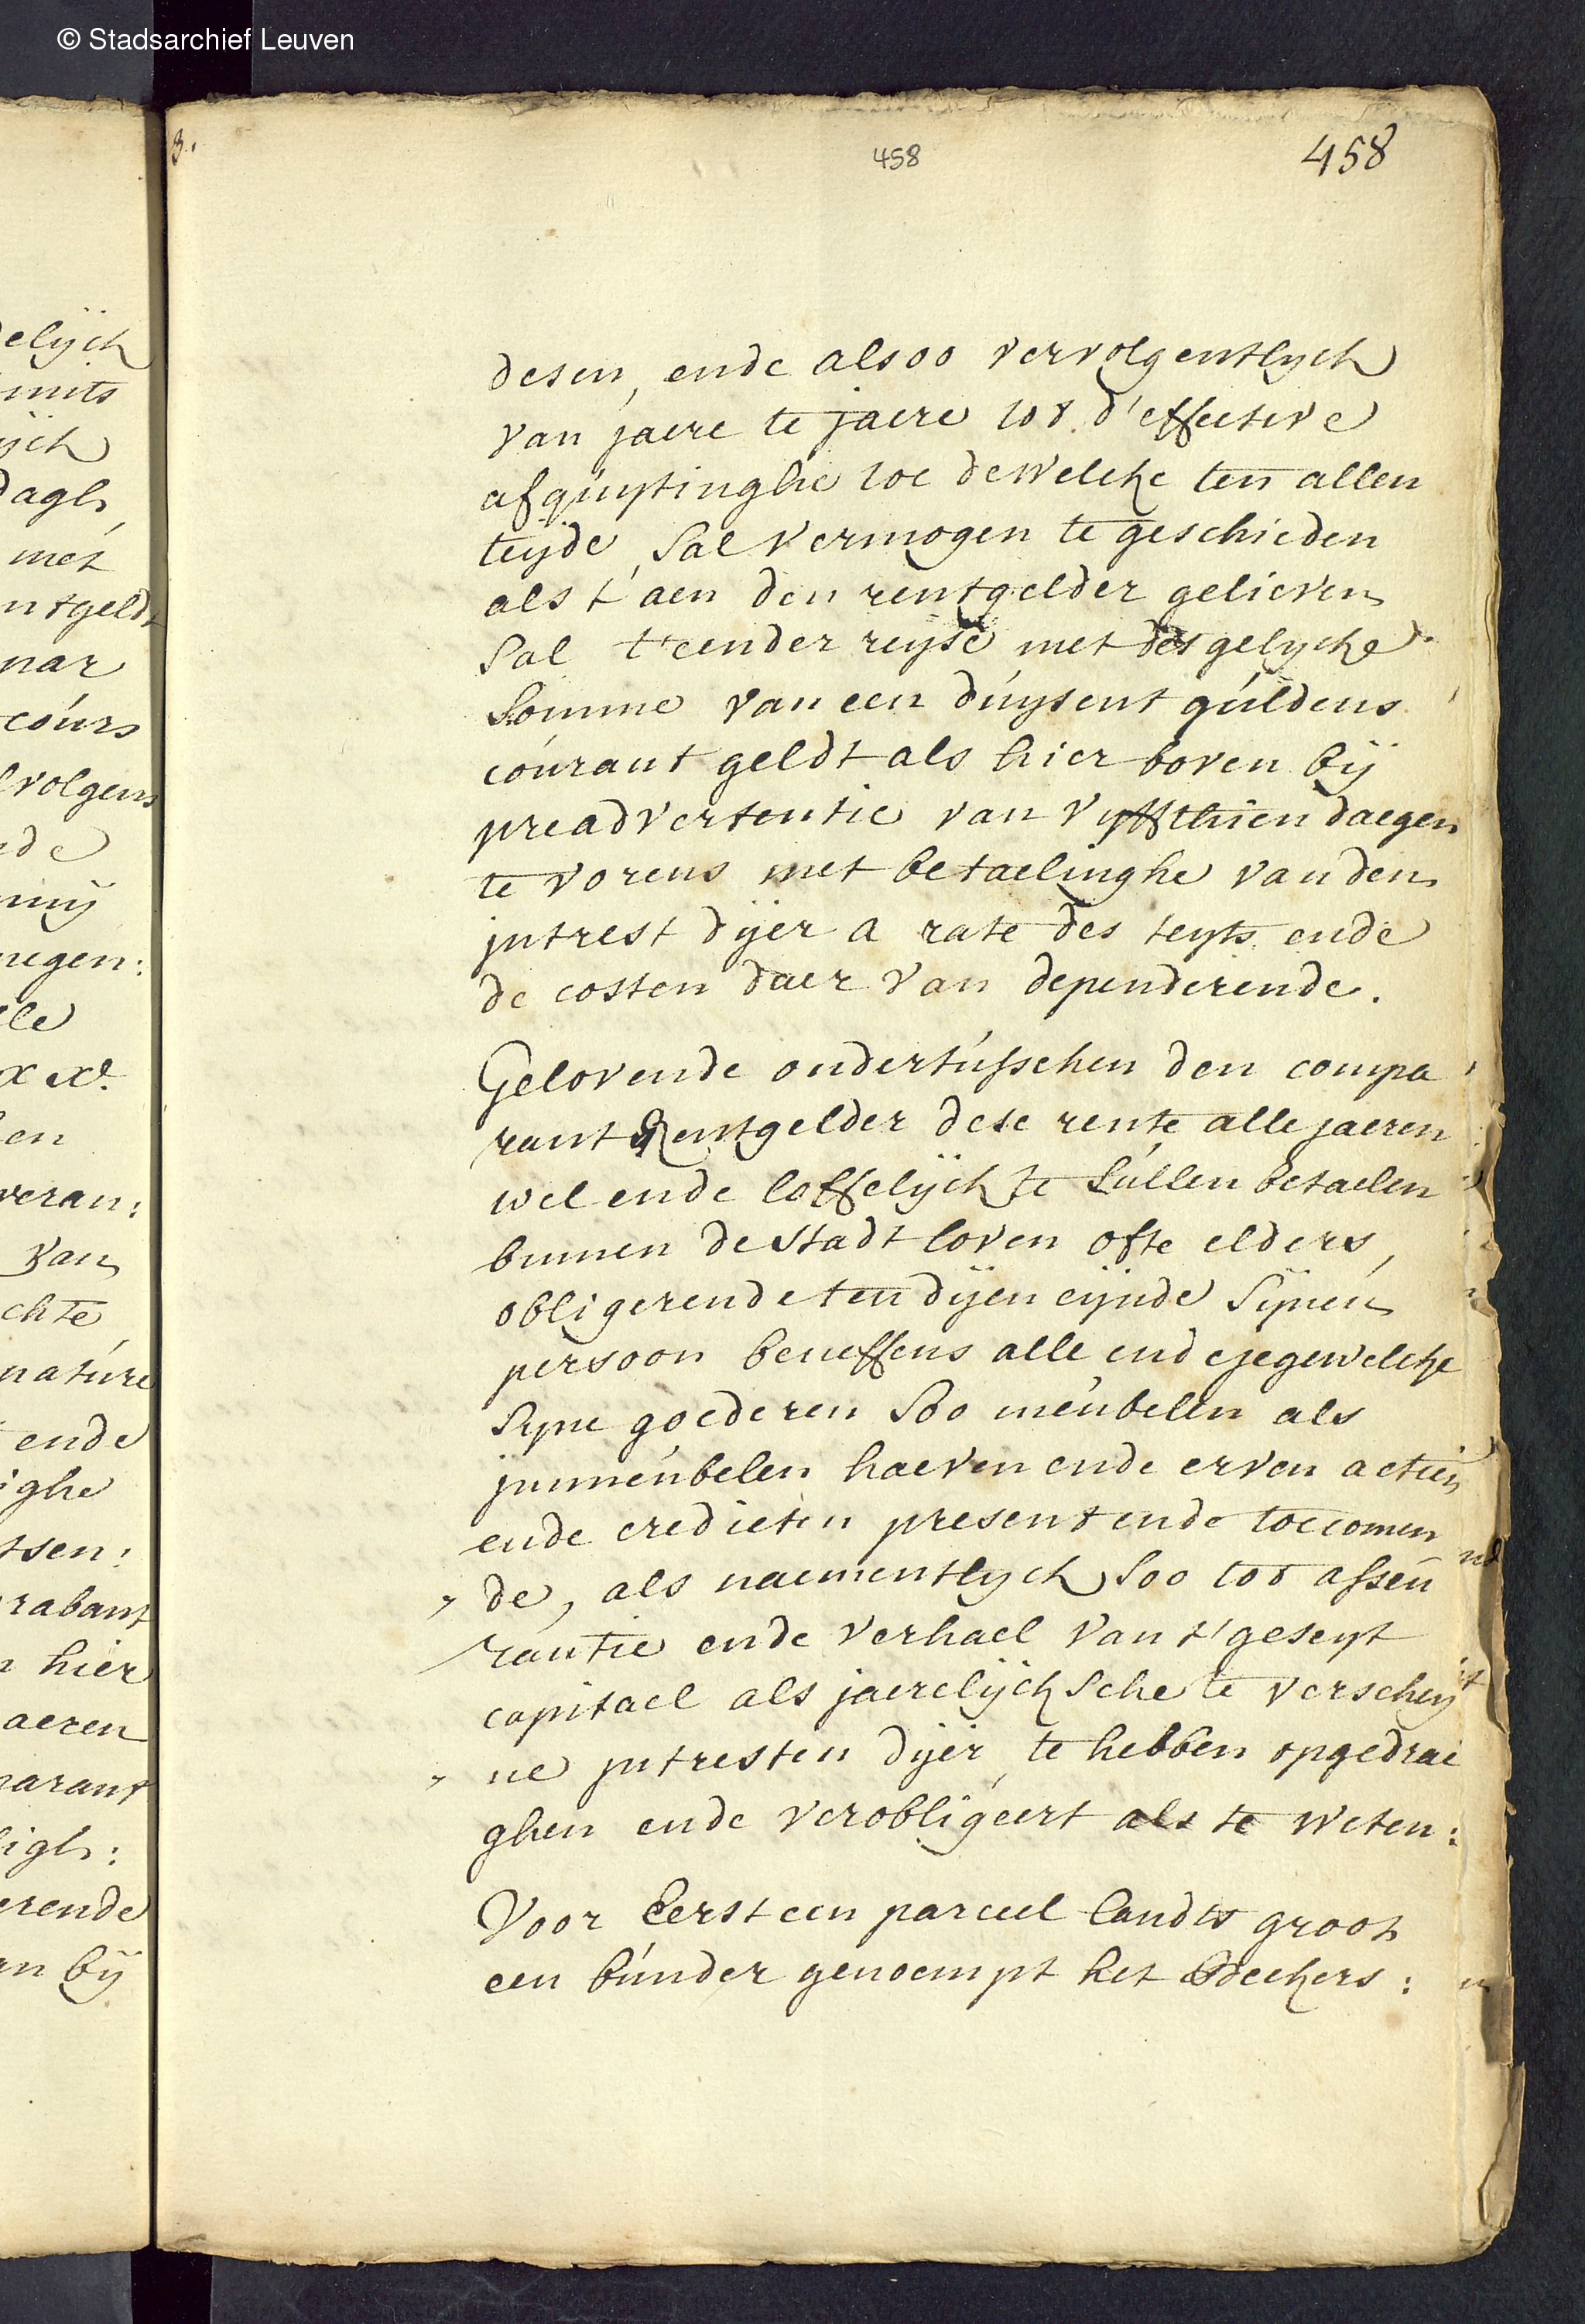 © Stadsarchief Leuven
3.
458
458
elijck
mits
ijck
dagh
met
ntgeldr
nar
cours
volgens
de
mij
negen:
le
x xd.
en
veran:
van
chte
nature
ende
ighe
tsen:
rabant
hier
aeren
parant
ligh:
erende
an bij
desen, ende alsoo vervolgentlijck
van jaere te jaere tot d'effective
afquytinghe toe dewelcke ten allen
teijde, sal vermogen te geschieden
als t'aen den rentgelder gelieven
sal t'eender reijse met desgelijcke
somme van een duysent guldens
courant geldt als hier boven bij
preadvertentie van vijffthien daegen
te vorens met betaelinghe van den
intrest dijer a rate des teyts ende
de costen daer van dependerende.
Gelovende ondertusschen den compa
rant Rentgelder dese rente alle jaeren
wel ende loffelijck te sullen betaelen
binnen de stadt loven ofte elders,
obligerende ten dijen eijnde sijnen
persoon beneffens alle ende jegewelcke
syne goederen soo meubelen als
immeubelen haeven ende erven actien
ende credieten present ende toecomen
de, als naementlyck soo tot asseu
rantie ende verhael van t'geseyt
capitael als jaerelijcksche te verscheij
ne intresten dijer, te hebben opgedrae
ghen ende verobligeert als te weten:
Voor Eerst een parceel landts groot
een bunder genoempt het Beckers: